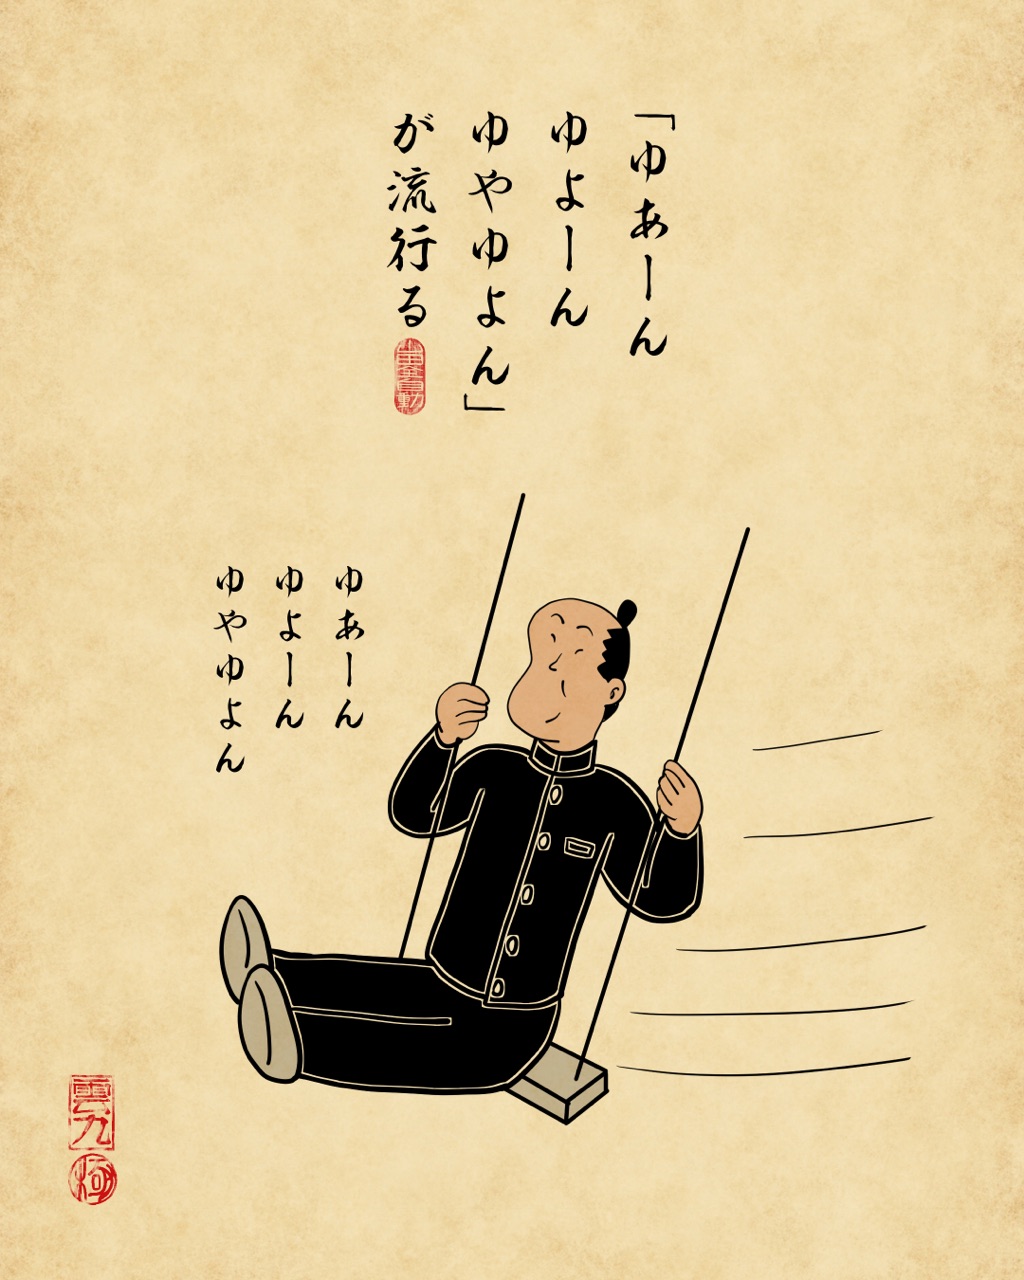 「ゆあーん
ゆよーん
ゆやゆよん」
が流行る
ゆあーん
ゆよーん
ゆやゆよん